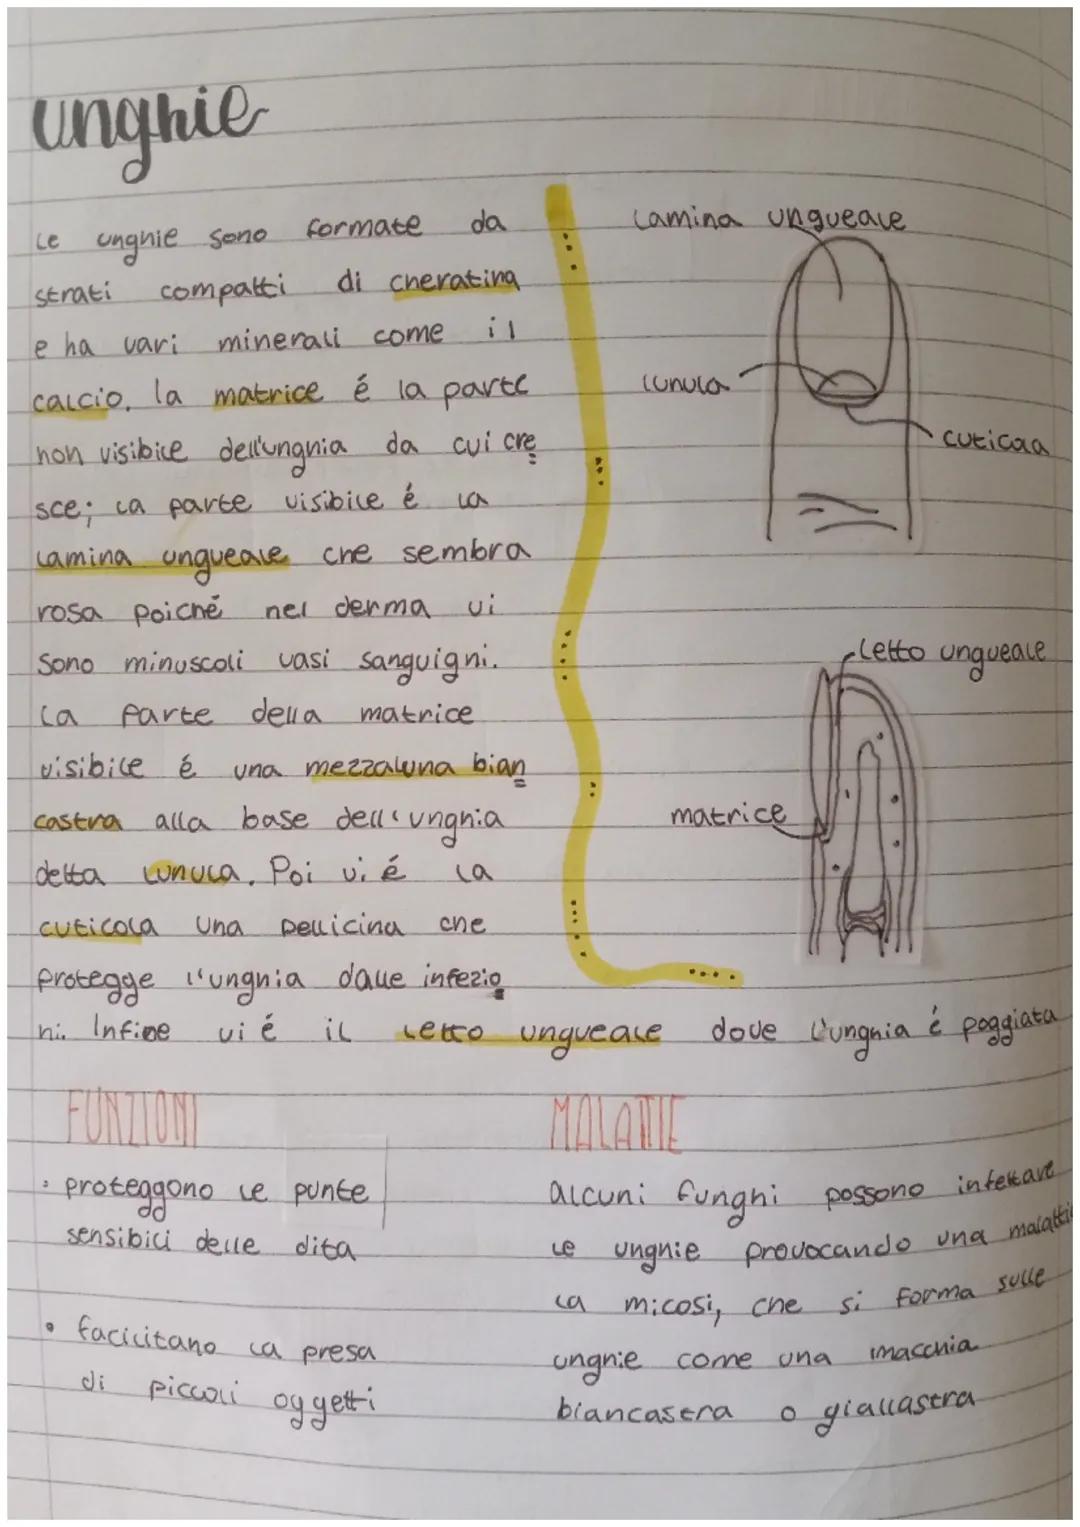 unghie
le unghie sono formate da
strati compatti di cheratina
e ha vari minerali come il
calcio. la matrice é la parte
non visibile dell'unghia da cui cre
sce; la parte visibile é la
lamina ungueale che sembra
rosa poiché nel derma vi
sono minuscoli vasi sanguigni.
la parte della matrice
visibile é una mezzaluna bian
castra alla base dell'unghia
detta lunula. Poi vi é la
cuticola una pellicina che
protegge l'unghia dalle infezio
ni. Infine vi é il letto ungueale dove l'unghia é poggiata
lamina ungueale
lunula
cuticola
letto ungueale
matrice
FUNZIONI
• proteggono le punte
sensibili delle dita
• facilitano la presa
di piccoli oggetti
MALATTIE
alcuni funghi possono infettare
le unghie provocando una malattia
la micosi, che si forma sulle
unghie come una macchia
biancastra o giallastra